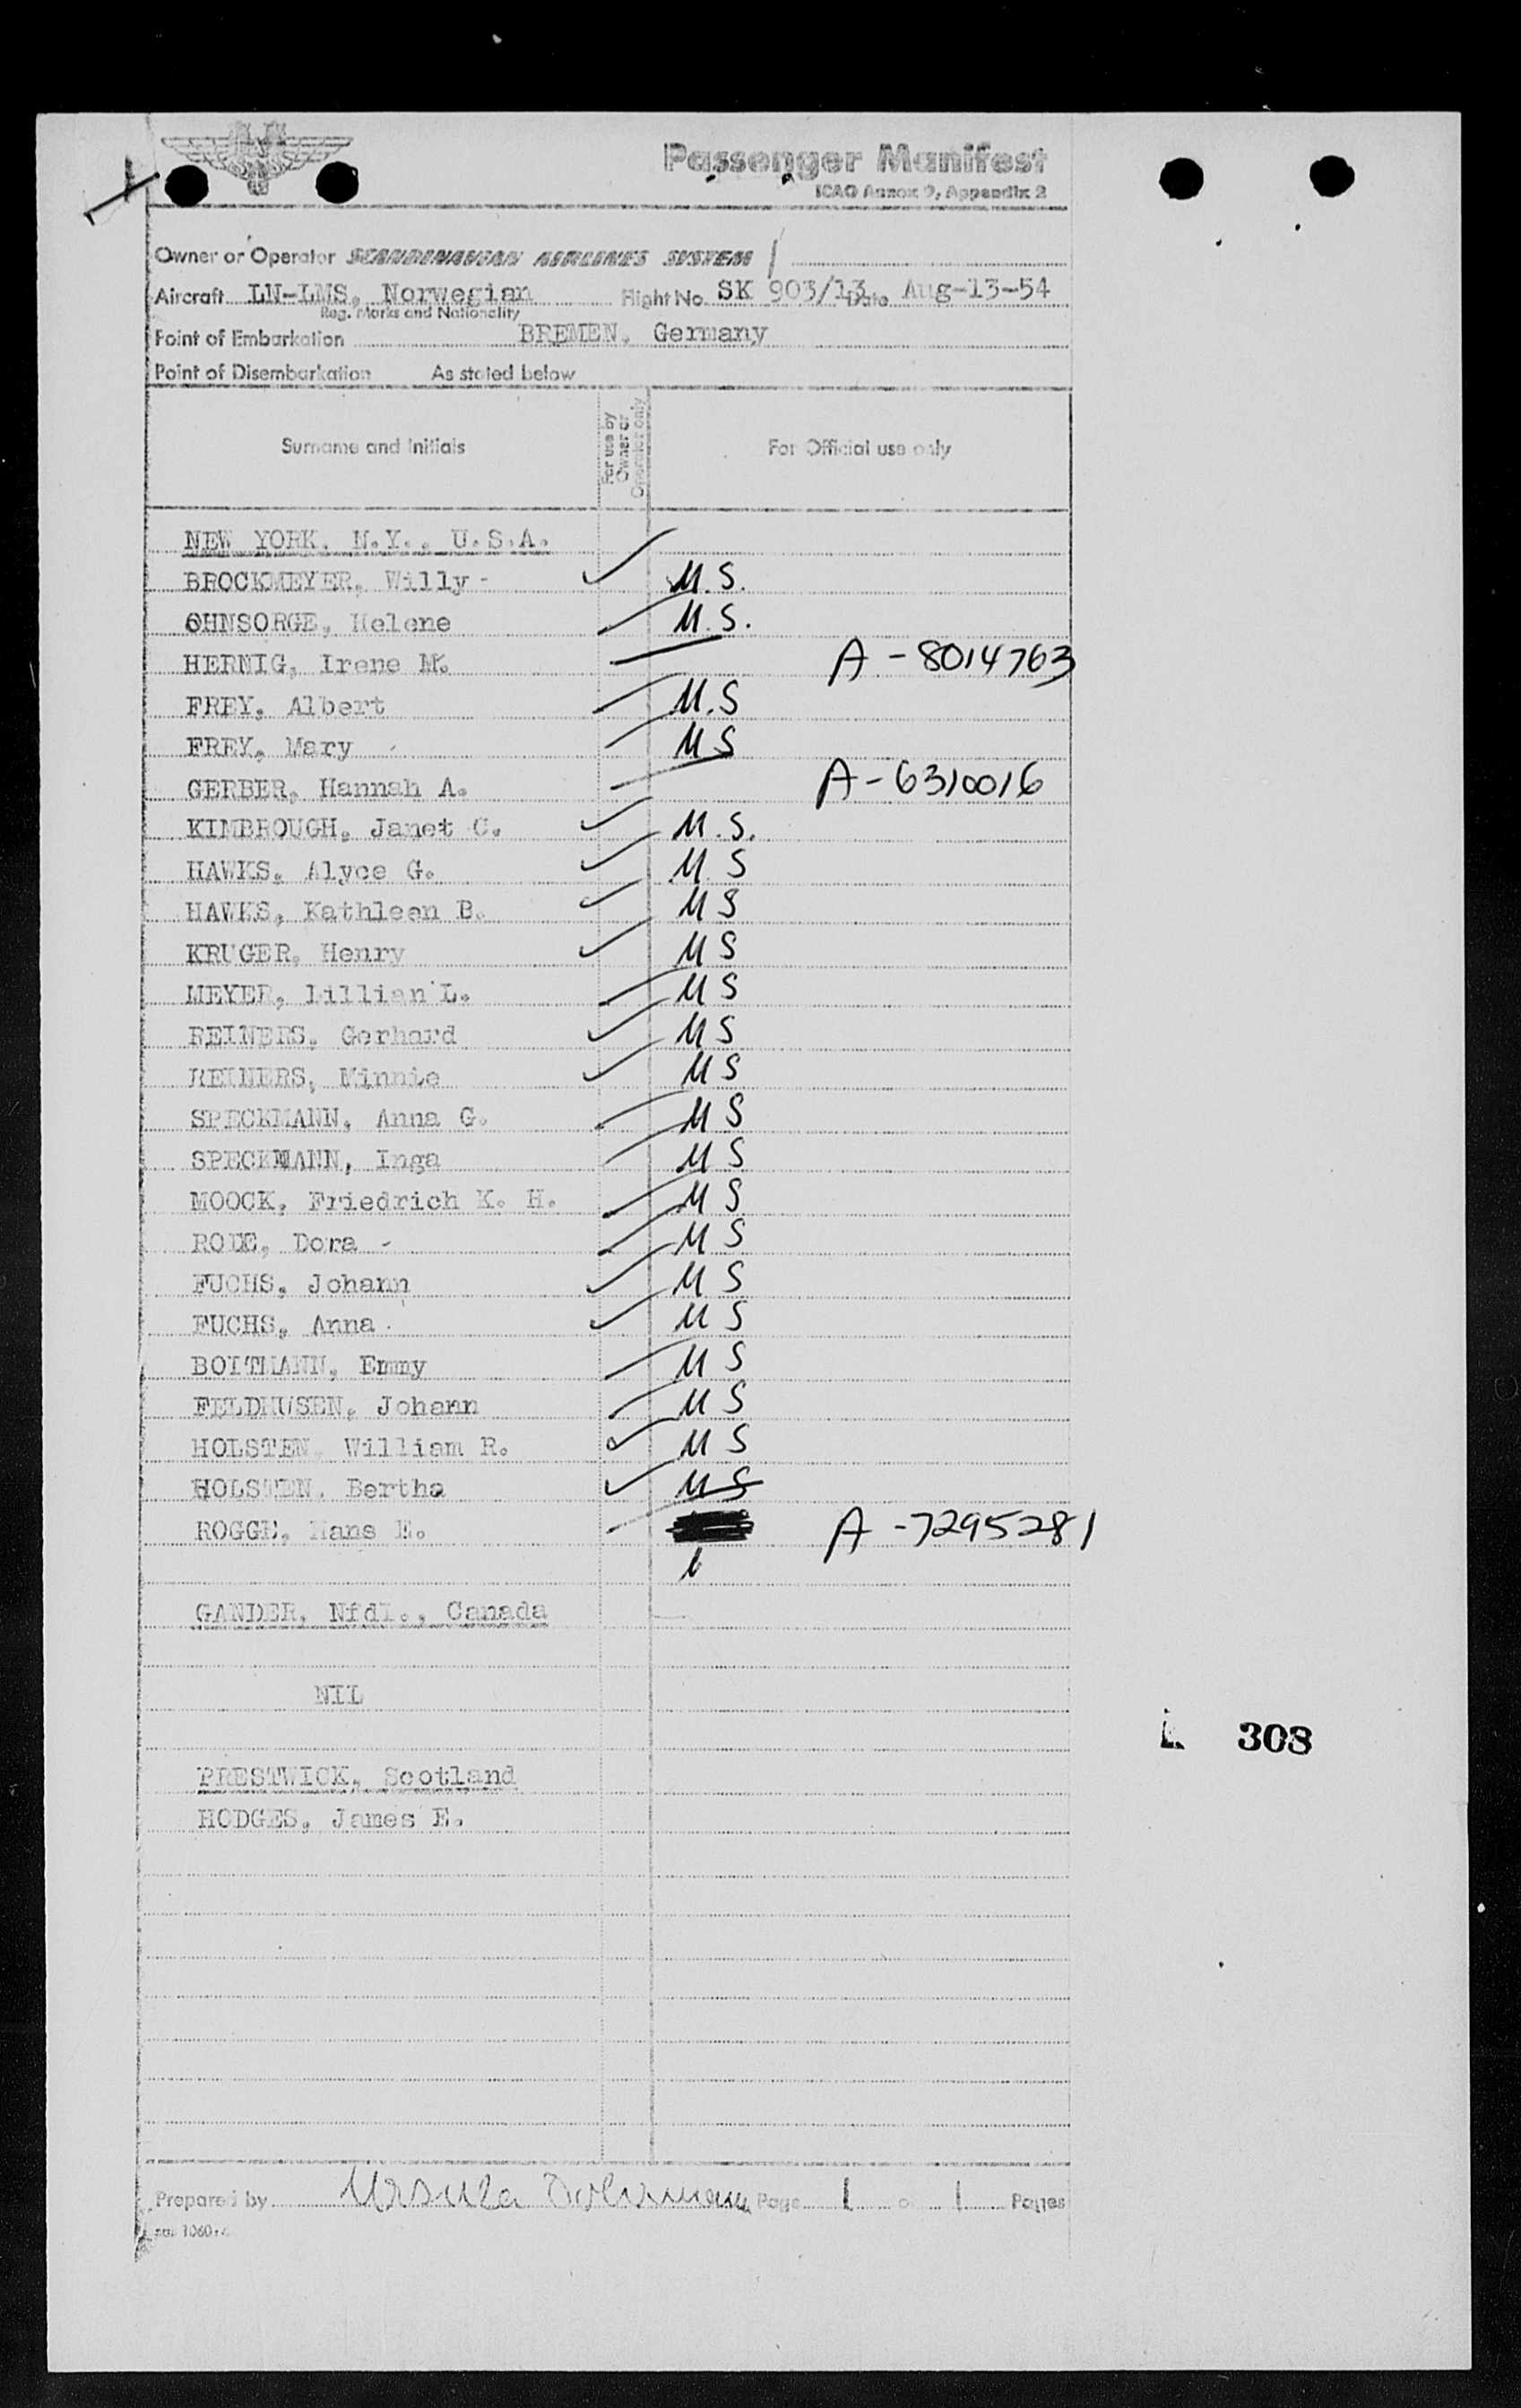 Passenger Manifest
ICAO Annex 9, Appendix 2
Owner or Operator SCANDINAVIAN AIRLINES SYSTEM
Aircraft LN-LMS, Norwegian Flight No. SK 903/13 Date Aug-13-54
Reg. Marks and Nationality
Point of Embarkation BREMEN, Germany
Point of Disembarkation As stated below
Surname and Initials For use by Owner or Operator only For Official use only
NEW YORK, N.Y., U.S.A.
BROCKMEYER, Willy - U.S.
OHNSORGE, Helene U.S.
HERNIG, Irene M. A-8014763
FREY, Albert U.S
FREY, Mary U S
GERBER, Hannah A. A-6310016
KIMBROUGH, Janet C. U.S.
HAWKS, Alyce G. U S
HAWKS, Kathleen B. U S
KRUGER, Henry U S
MEYER, Lillian L. U S
REINERS, Gerhard U S
REINERS, Minnie U S
SPECKMANN, Anna G. U S
SPECKMANN, Inga U S
MOOCK, Friedrich K. H. U S
RODE, Dora - U S
FUCHS, Johann U S
FUCHS, Anna U S
BOITMANN, Emmy U S
FELDHUSEN, Johann U S
HOLSTEN, William R. U S
HOLSTEN, Bertha U S
ROGGE, Hans E. A-7295281
GANDER, Nfdl., Canada
NIL
308
PRESTWICK, Scotland
HODGES, James E.
Prepared by Ursula Page 1 of 1 Pages